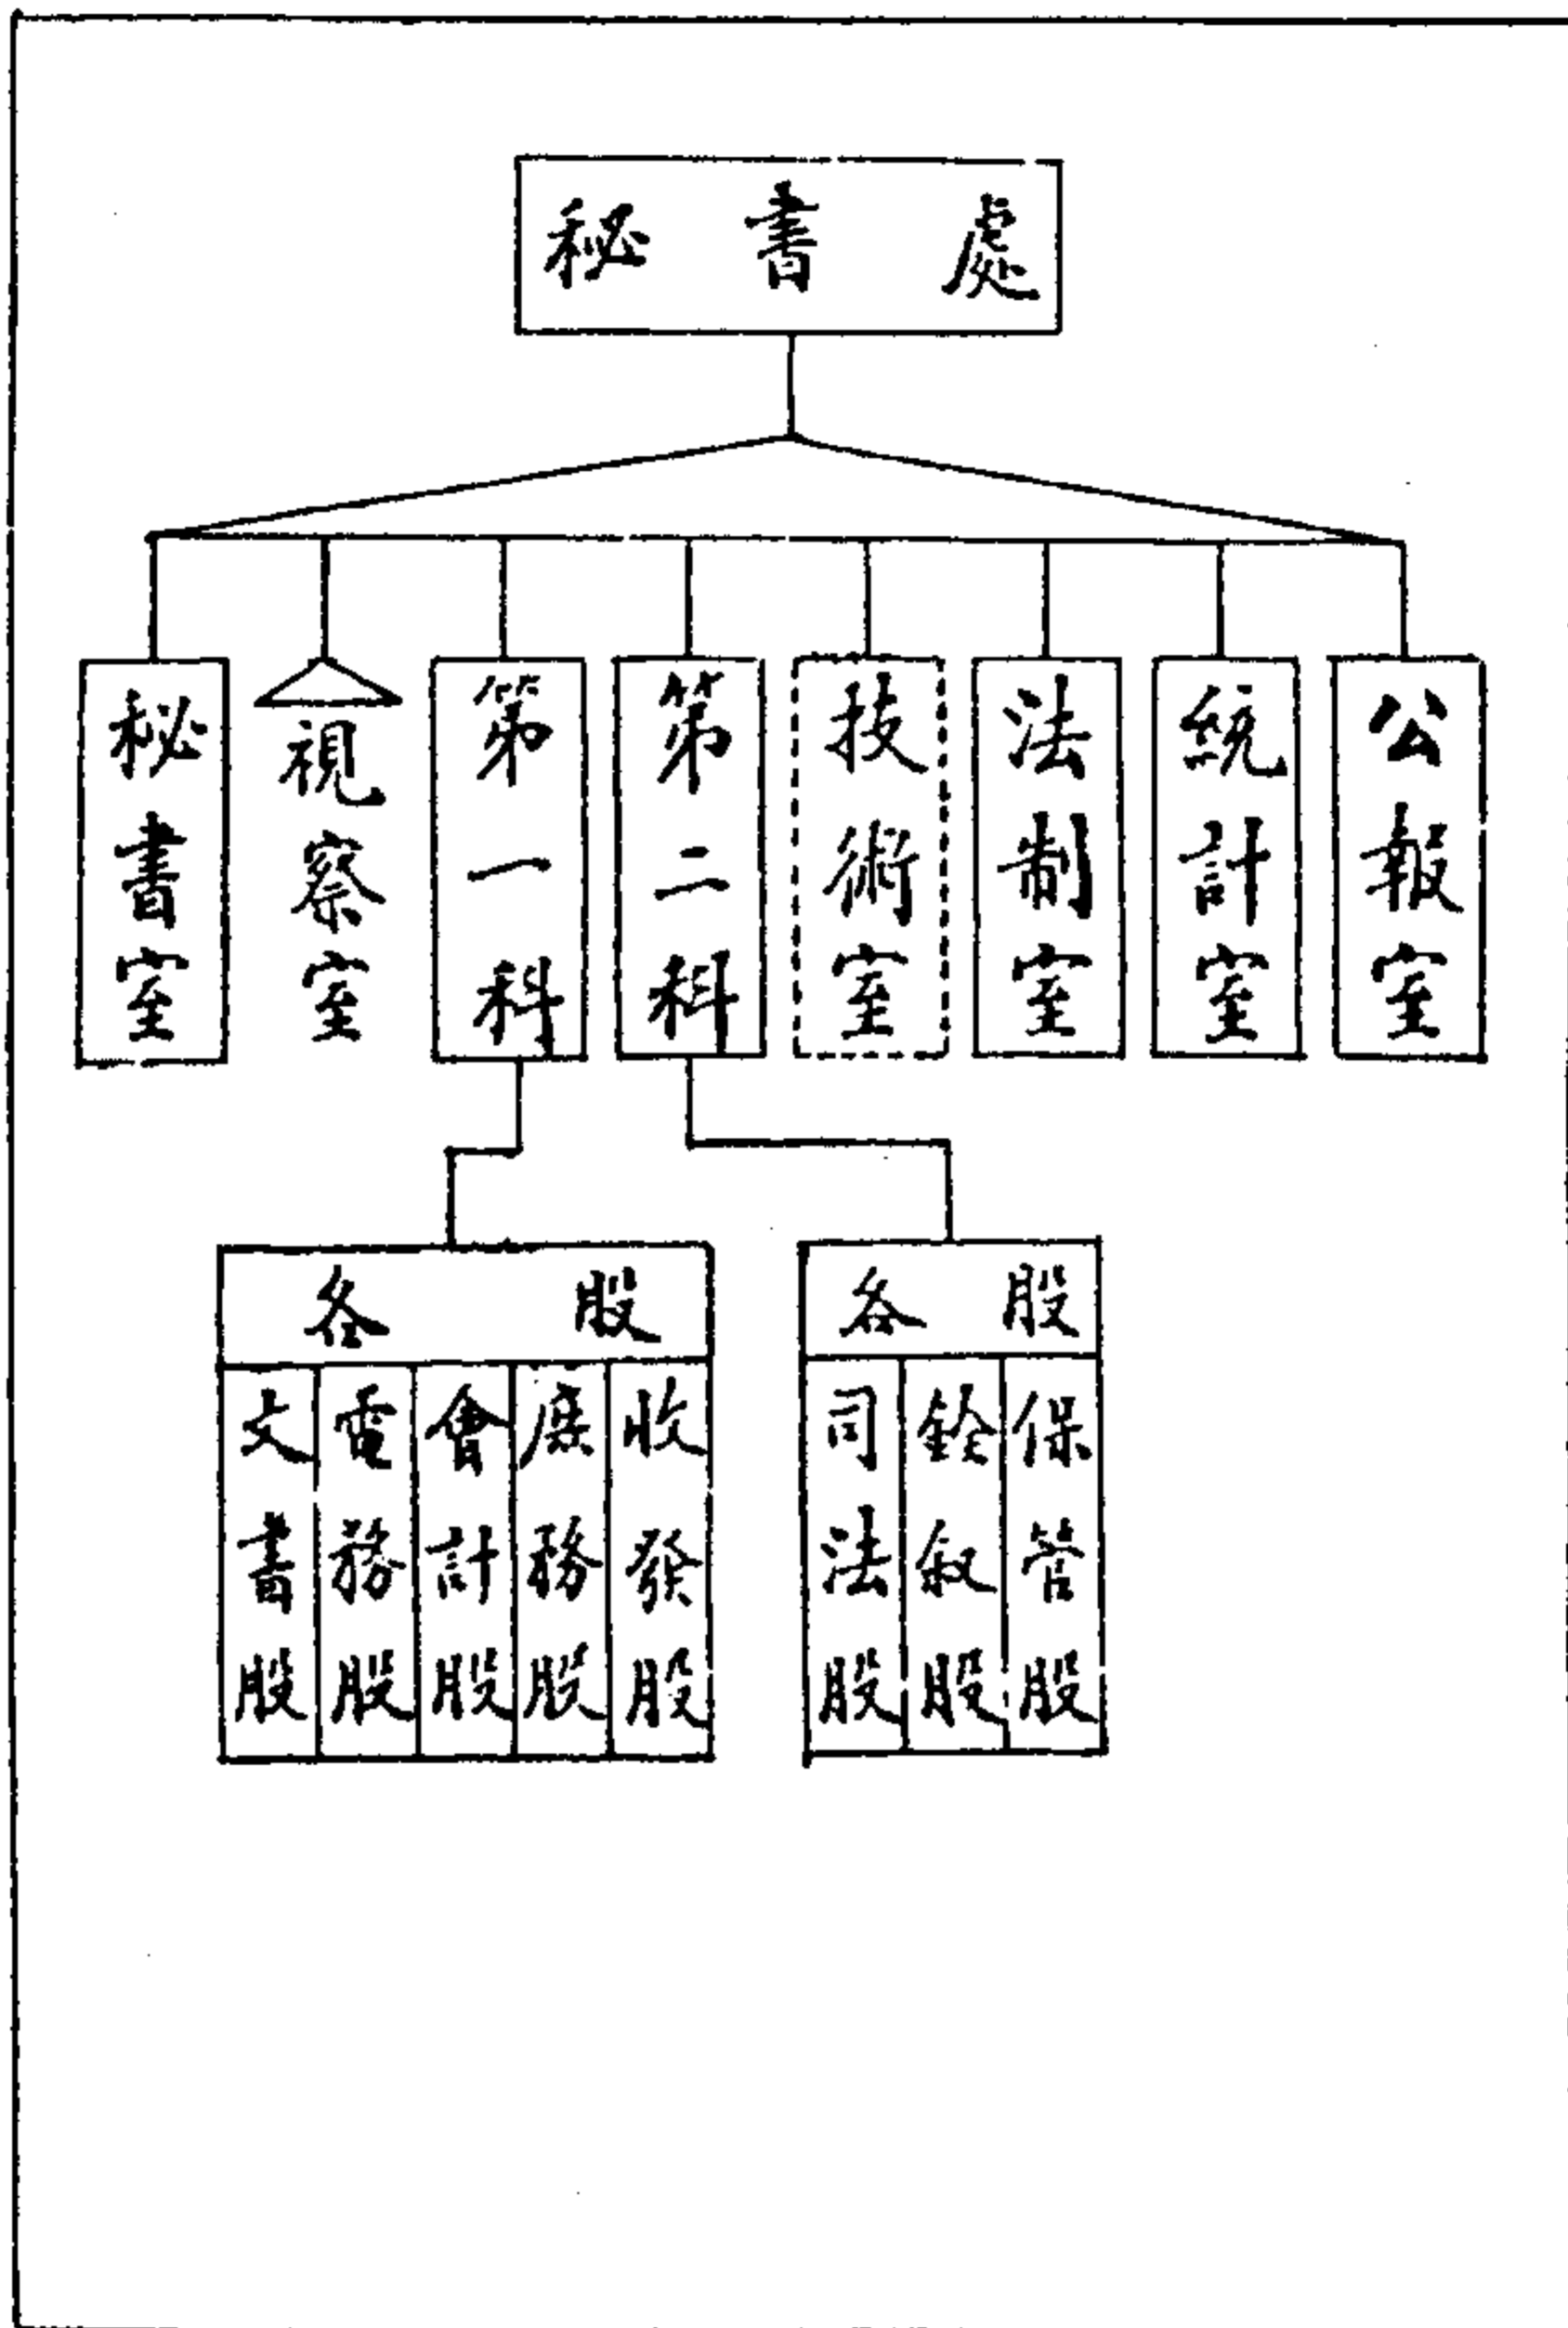 秘書處
秘書室
視察室
第一科
第二科
技術室
法制室
統計室
公報室
各股
文書股
電務股
會計股
庶務股
收發股
各股
司法股
銓敘股
保管股